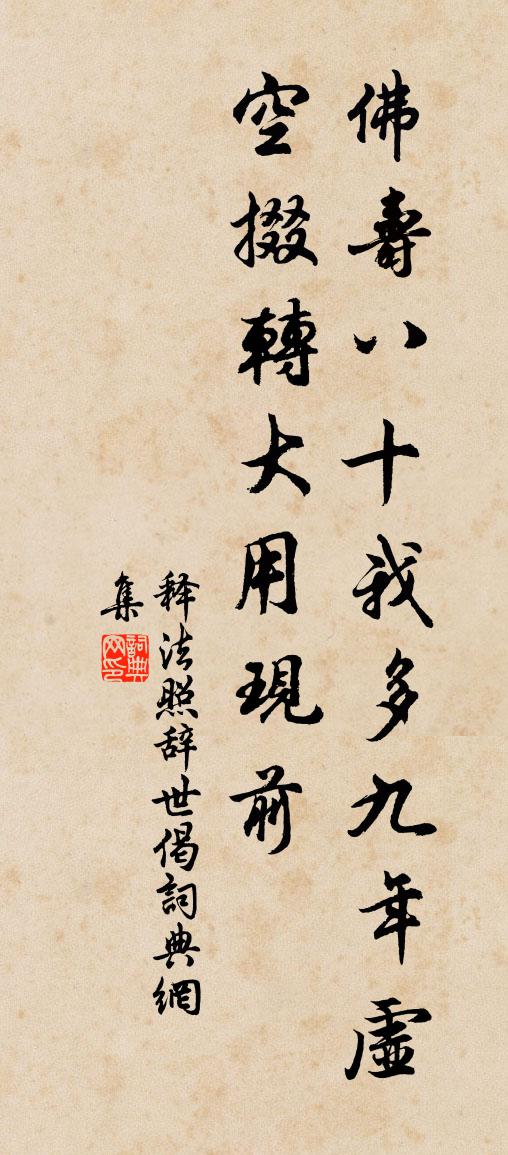 佛壽八十我多九年虛
空掇轉大用現前
释法照辞世偈詞典網
集
詞典网印